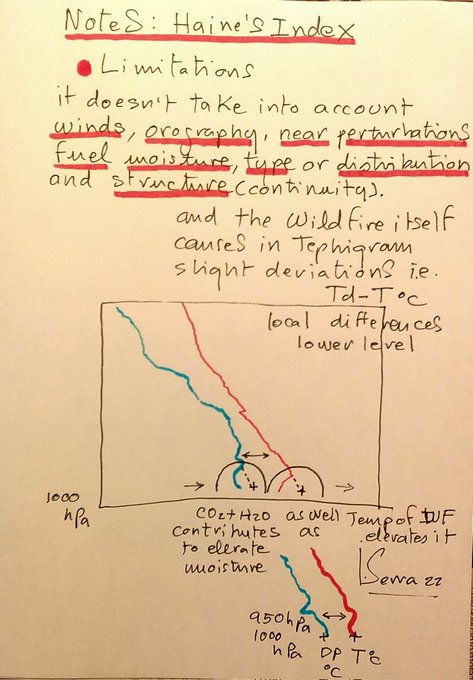 Notes: Haine's Index
Limitations
it doesn't take into account
winds, orography, near perturbations
fuel moisture, type or distribution
and structure (continuity).
and the Wildfire itself
causes in Tephigram
slight deviations i.e.
Td-T °C
local differences
lower level
1000
hPa
CO2+H2O
contributes
to elevate
moisture
as well
as
Temp of WF
elevates it
Serra 22
950hPa
1000
hPa
DP
°C
T°C